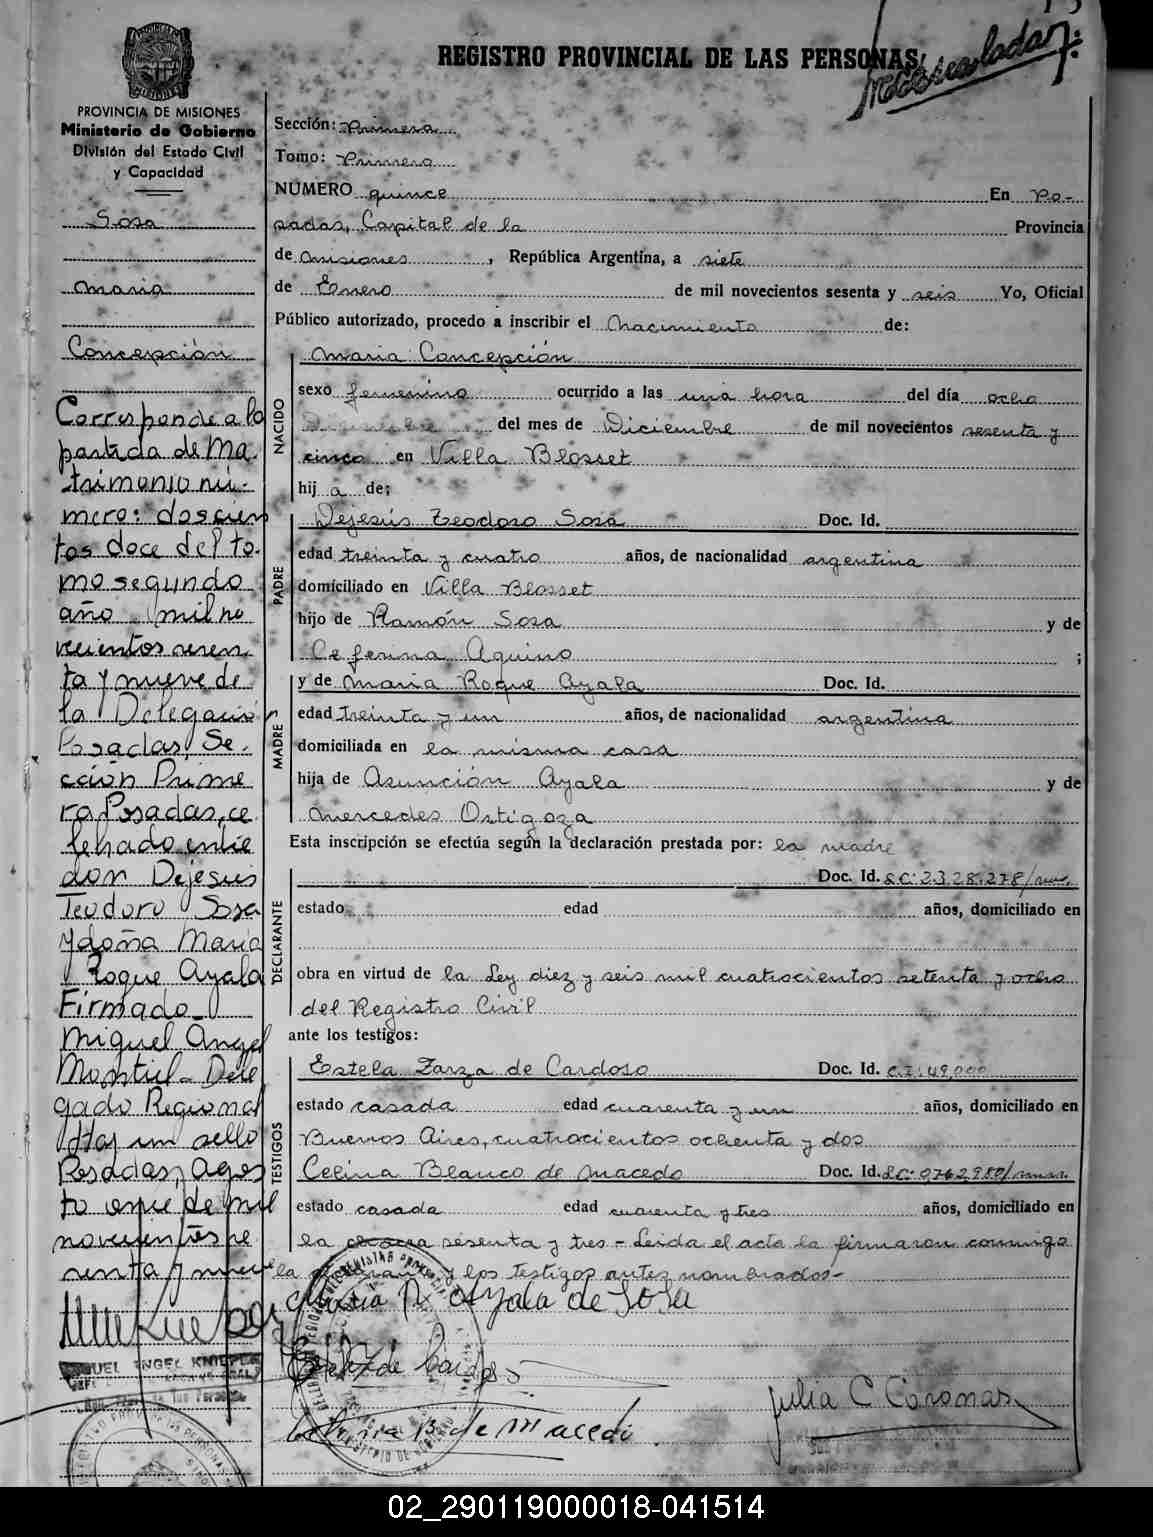 REGISTRO PROVINCIAL DE LAS PERSONAS
PROVINCIA DE MISIONES
Ministerio de Gobierno
División del Estado Civil
y Capacidad
Sosa
Maria
Concepción
Corresponde a la
partida de Ma-
trimonio nú-
mero: doscien
tos doce del to-
mo segundo
año mil no
vecientos sesen
ta y nueve de
la Delegació
Posadas, Se-
cción Prime
ra Posadas, ce
lebrado entre
don Dejesus
Teodoro Sosa
y doña Maria
Roque Ayala
Firmado_
Miguel Angel
Montiel - Dele
gado Regional
Hay un sello
Posadas, Agos
to once de mil
novecientos se
senta y nueve
Sección: Primera
Tomo: Primero
NUMERO quince En Po-
sadas, Capital de la Provincia
de Misiones, República Argentina, a siete
de Enero de mil novecientos sesenta y seis Yo, Oficial
Público autorizado, procedo a inscribir el Nacimiento de:
NACIDO
Maria Concepción
sexo femenino ocurrido a las una hora del día ocho
del mes de Diciembre de mil novecientos sesenta y
cinco en Villa Blosset
hij a de;
PADRE
Dejesús Teodoro Sosa Doc. Id.
edad treinta y cuatro años, de nacionalidad argentina
domiciliado en Villa Blosset
hijo de Ramón Sosa y de
Ceferina Aquino ;
MADRE
y de Maria Roque Ayala Doc. Id.
edad treinta y un años, de nacionalidad argentina
domiciliada en la misma casa
hija de Asunción Ayala y de
Mercedes Ortigoza
Esta inscripción se efectúa según la declaración prestada por: la madre
DECLARANTE
Doc. Id. LC: 2.328.278/
estado edad años, domiciliado en
obra en virtud de la Ley diez y seis mil cuatrocientos setenta y ocho
del Registro Civil
ante los testigos:
TESTIGOS
Estela Zarza de Cardoso Doc. Id. C.I: 49,000
estado casada edad cuarenta y un años, domiciliado en
Buenos Aires, cuatrocientos ochenta y dos
Celina Blanco de Macedo Doc. Id. LC:
estado casada edad cuarenta y tres años, domiciliado en
la sesenta y tres - Leida el acta la firmaron conmigo
la y los testigos antes nombrados-
Maria R Ayala de Sosa
de Cardoso
B. de Macedi
Julia C Coronas
02_290119000018-041514